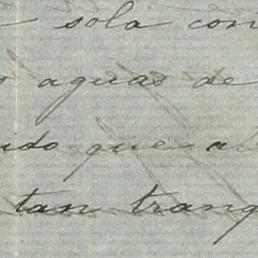 sola con
aguas de
ndo que al
tan tranq